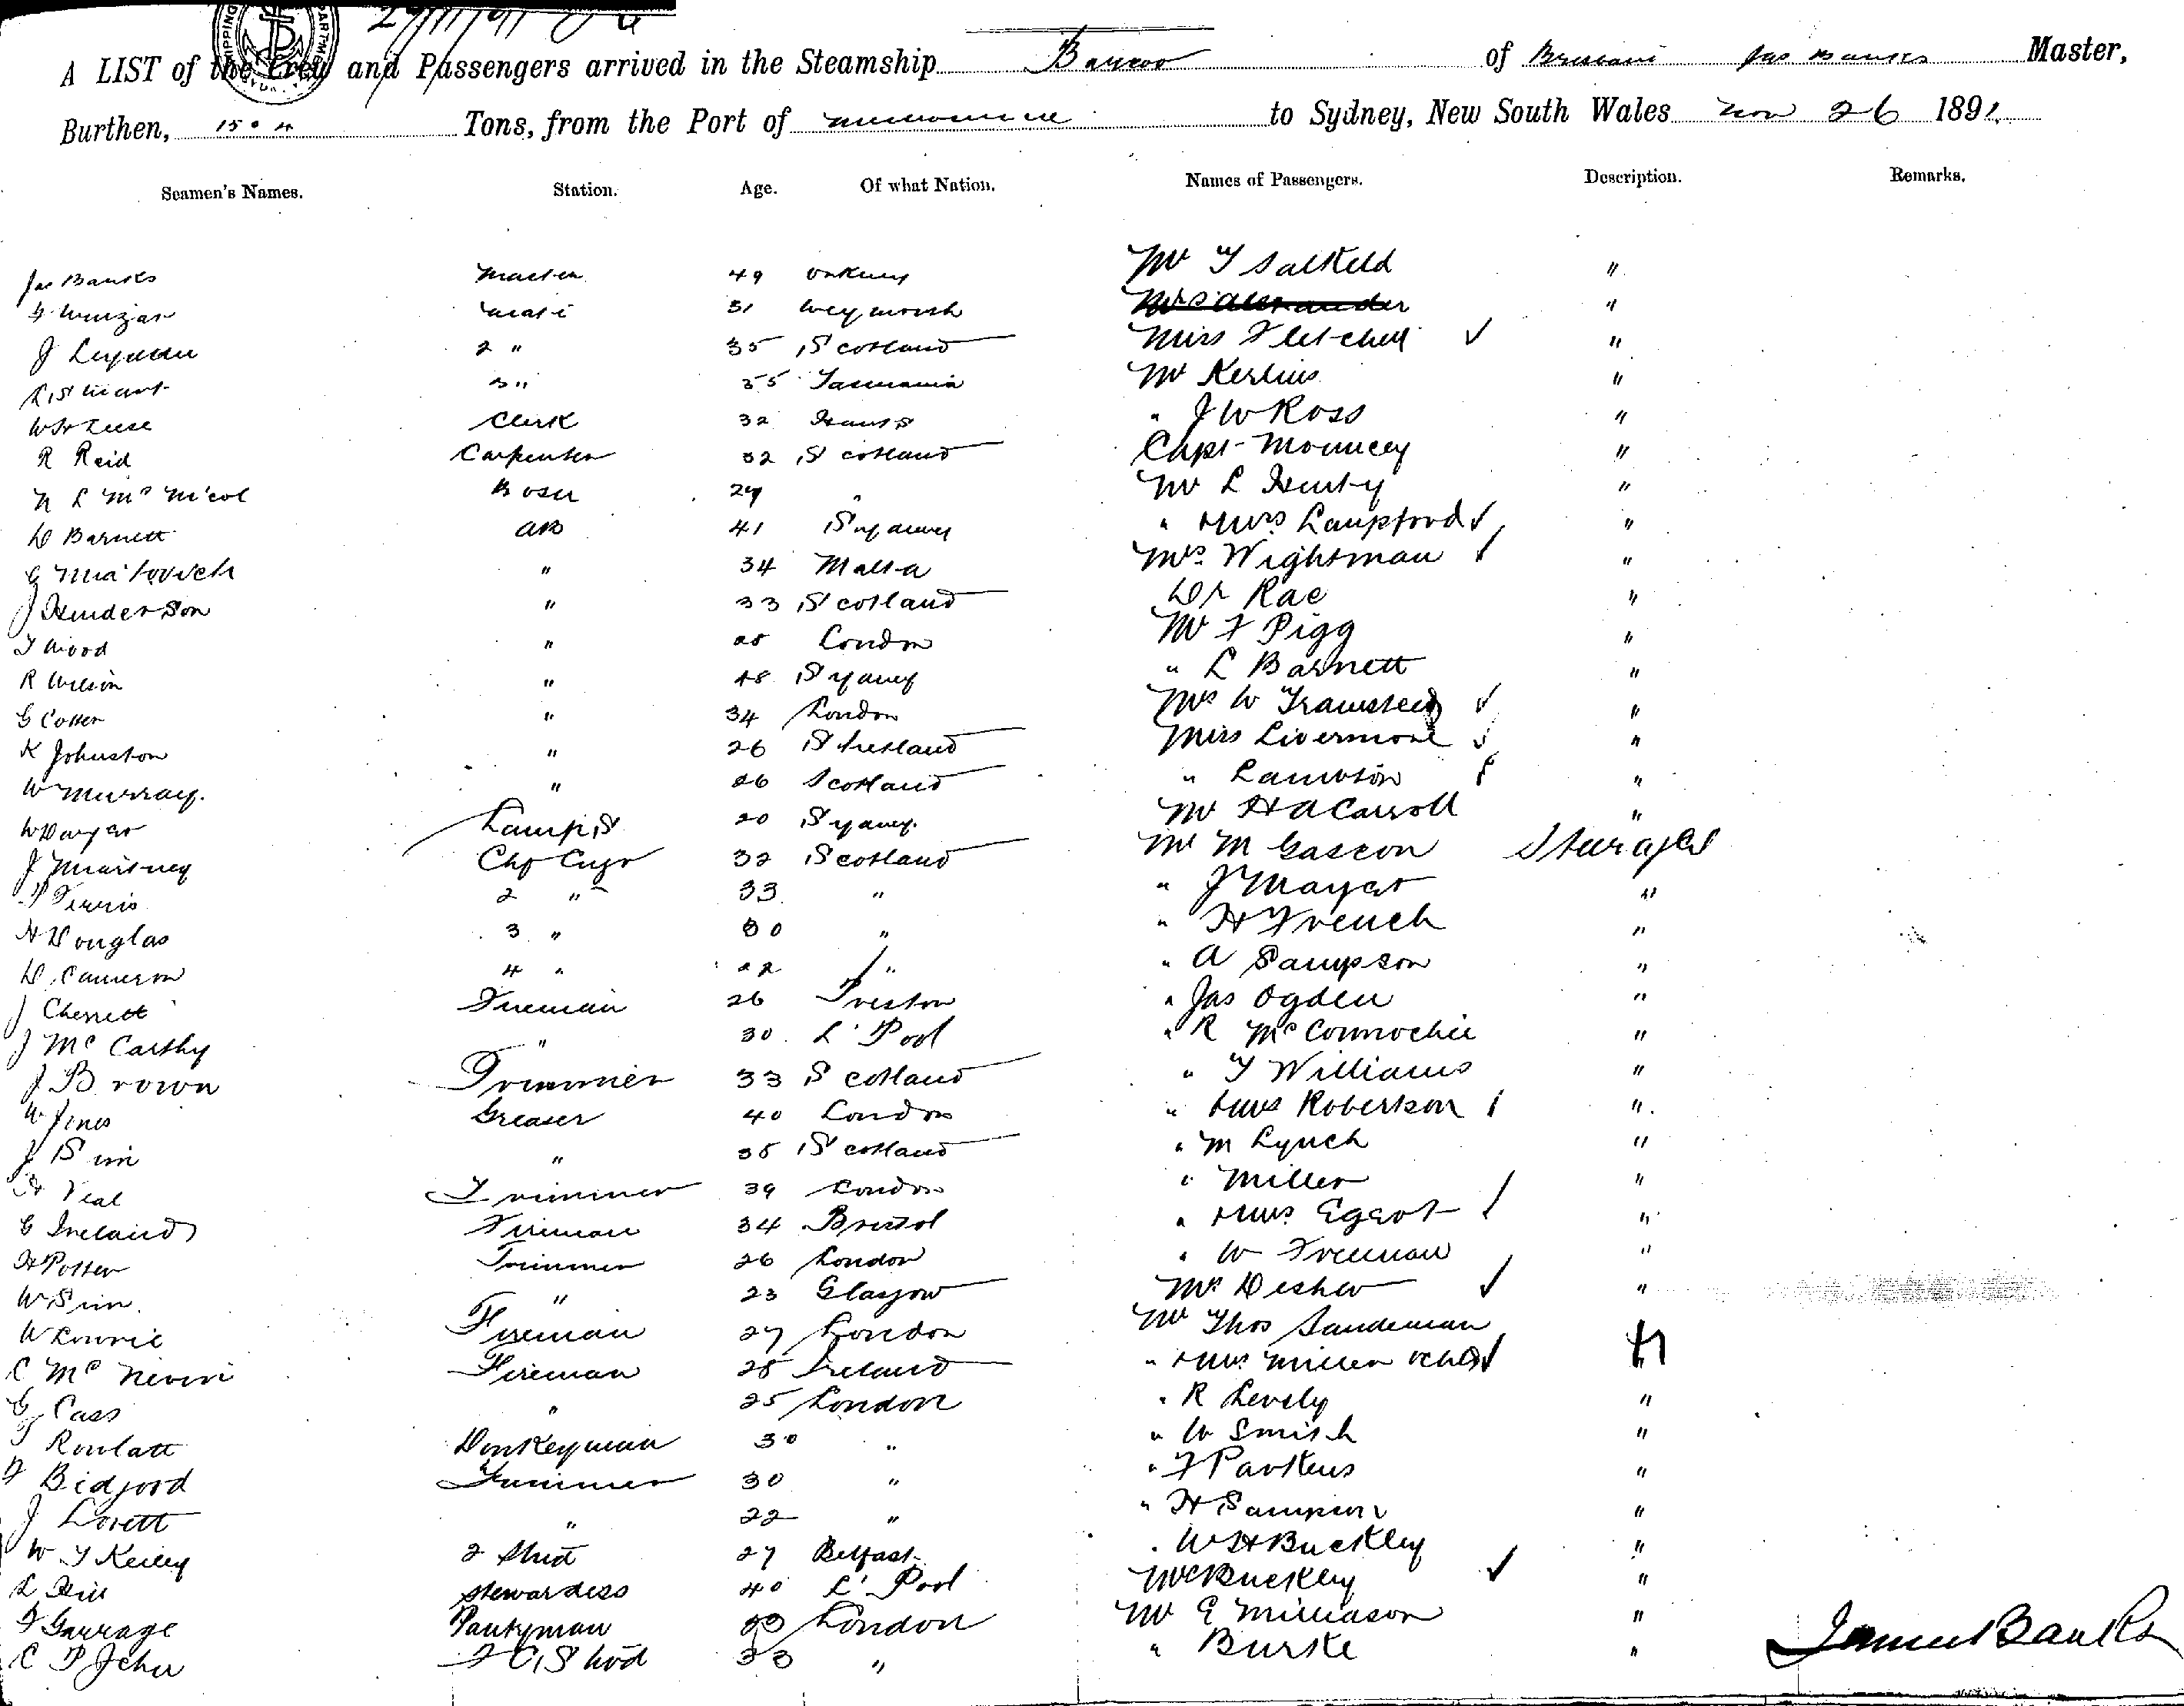 27/11/91
A LIST of the Crew and Passengers arrived in the Steamship Barcoo of Brisbane Jas Banks Master,
Burthen, 1504 Tons, from the Port of Melbourne to Sydney, New South Wales Nov 26 1891
Seamen's Names. Station. Age. Of what Nation. Names of Passengers. Description. Remarks.
Jas Banks Master 49 Orkney Mr T Salkeld "
mate 31 Weymouth Mrs Alexander "
J 2 " 35 Scotland Miss Fletcher ✓ "
3 " 35 Tasmania Mr "
Clerk 32 Hants " J W Ross "
R Reid Carpenter 32 Scotland Capt Mouncey "
N L McNicol Bosn 29 " Mr L Henty "
D Barnett AB 41 Sydney " Mrs Lampford ✓ "
G " 34 Malta Mrs Wightman ✓ "
J Henderson " 33 Scotland Dr Rae "
T Wood " London Mr F Pigg "
R Wilson " 48 Sydney " L Barnett "
G Cotter " 34 London Mrs W ✓ "
K Johnston " 26 Shetland Miss Livermore ✓ "
W Murray. " 26 Scotland " "
W 20 Sydney. Mr H A Carroll "
J Chf Engr 32 Scotland Mr M Gascon Steerage
2 " 33 " " J Mayar "
H Douglas 3 " 30 " " H French "
D. Cameron 4 " 22 " " A Sampson "
J Cherrett Fireman 26 Preston " Jas Ogden "
J McCarthy " 30 L'Pool " R McConnochie "
J Brown Trimmer 33 Scotland " T Williams "
W Jines Greaser 40 London " Mrs Robertson "
J Sim " 35 Scotland " M Lynch "
Veal Trimmer 39 London " Miller "
G Ireland Fireman 34 Bristol " Mrs Egert "
H Potter Trimmer 26 London " W Freeman "
W Sim. " 23 Glasgow ✓ "
W Lowrie Fireman 27 London Mr Thos Sandeman "
C McNevin Fireman 28 Ireland " Mrs Miller "
G Cass " 25 London " R Levely "
Rowlatt Donkeyman 30 " " W Smith "
F Bidford Trimmer 30 " " F Parkens "
J Lovett " 22 " " H Sampson "
W T Keiley 2 Stwd 27 Belfast " W H Buckley "
L Hill Stewardess 40 L'Pool Mrs Buckley ✓ "
F Garrage Pantryman London Mr E "
C P 33 " " Burke "
James Banks